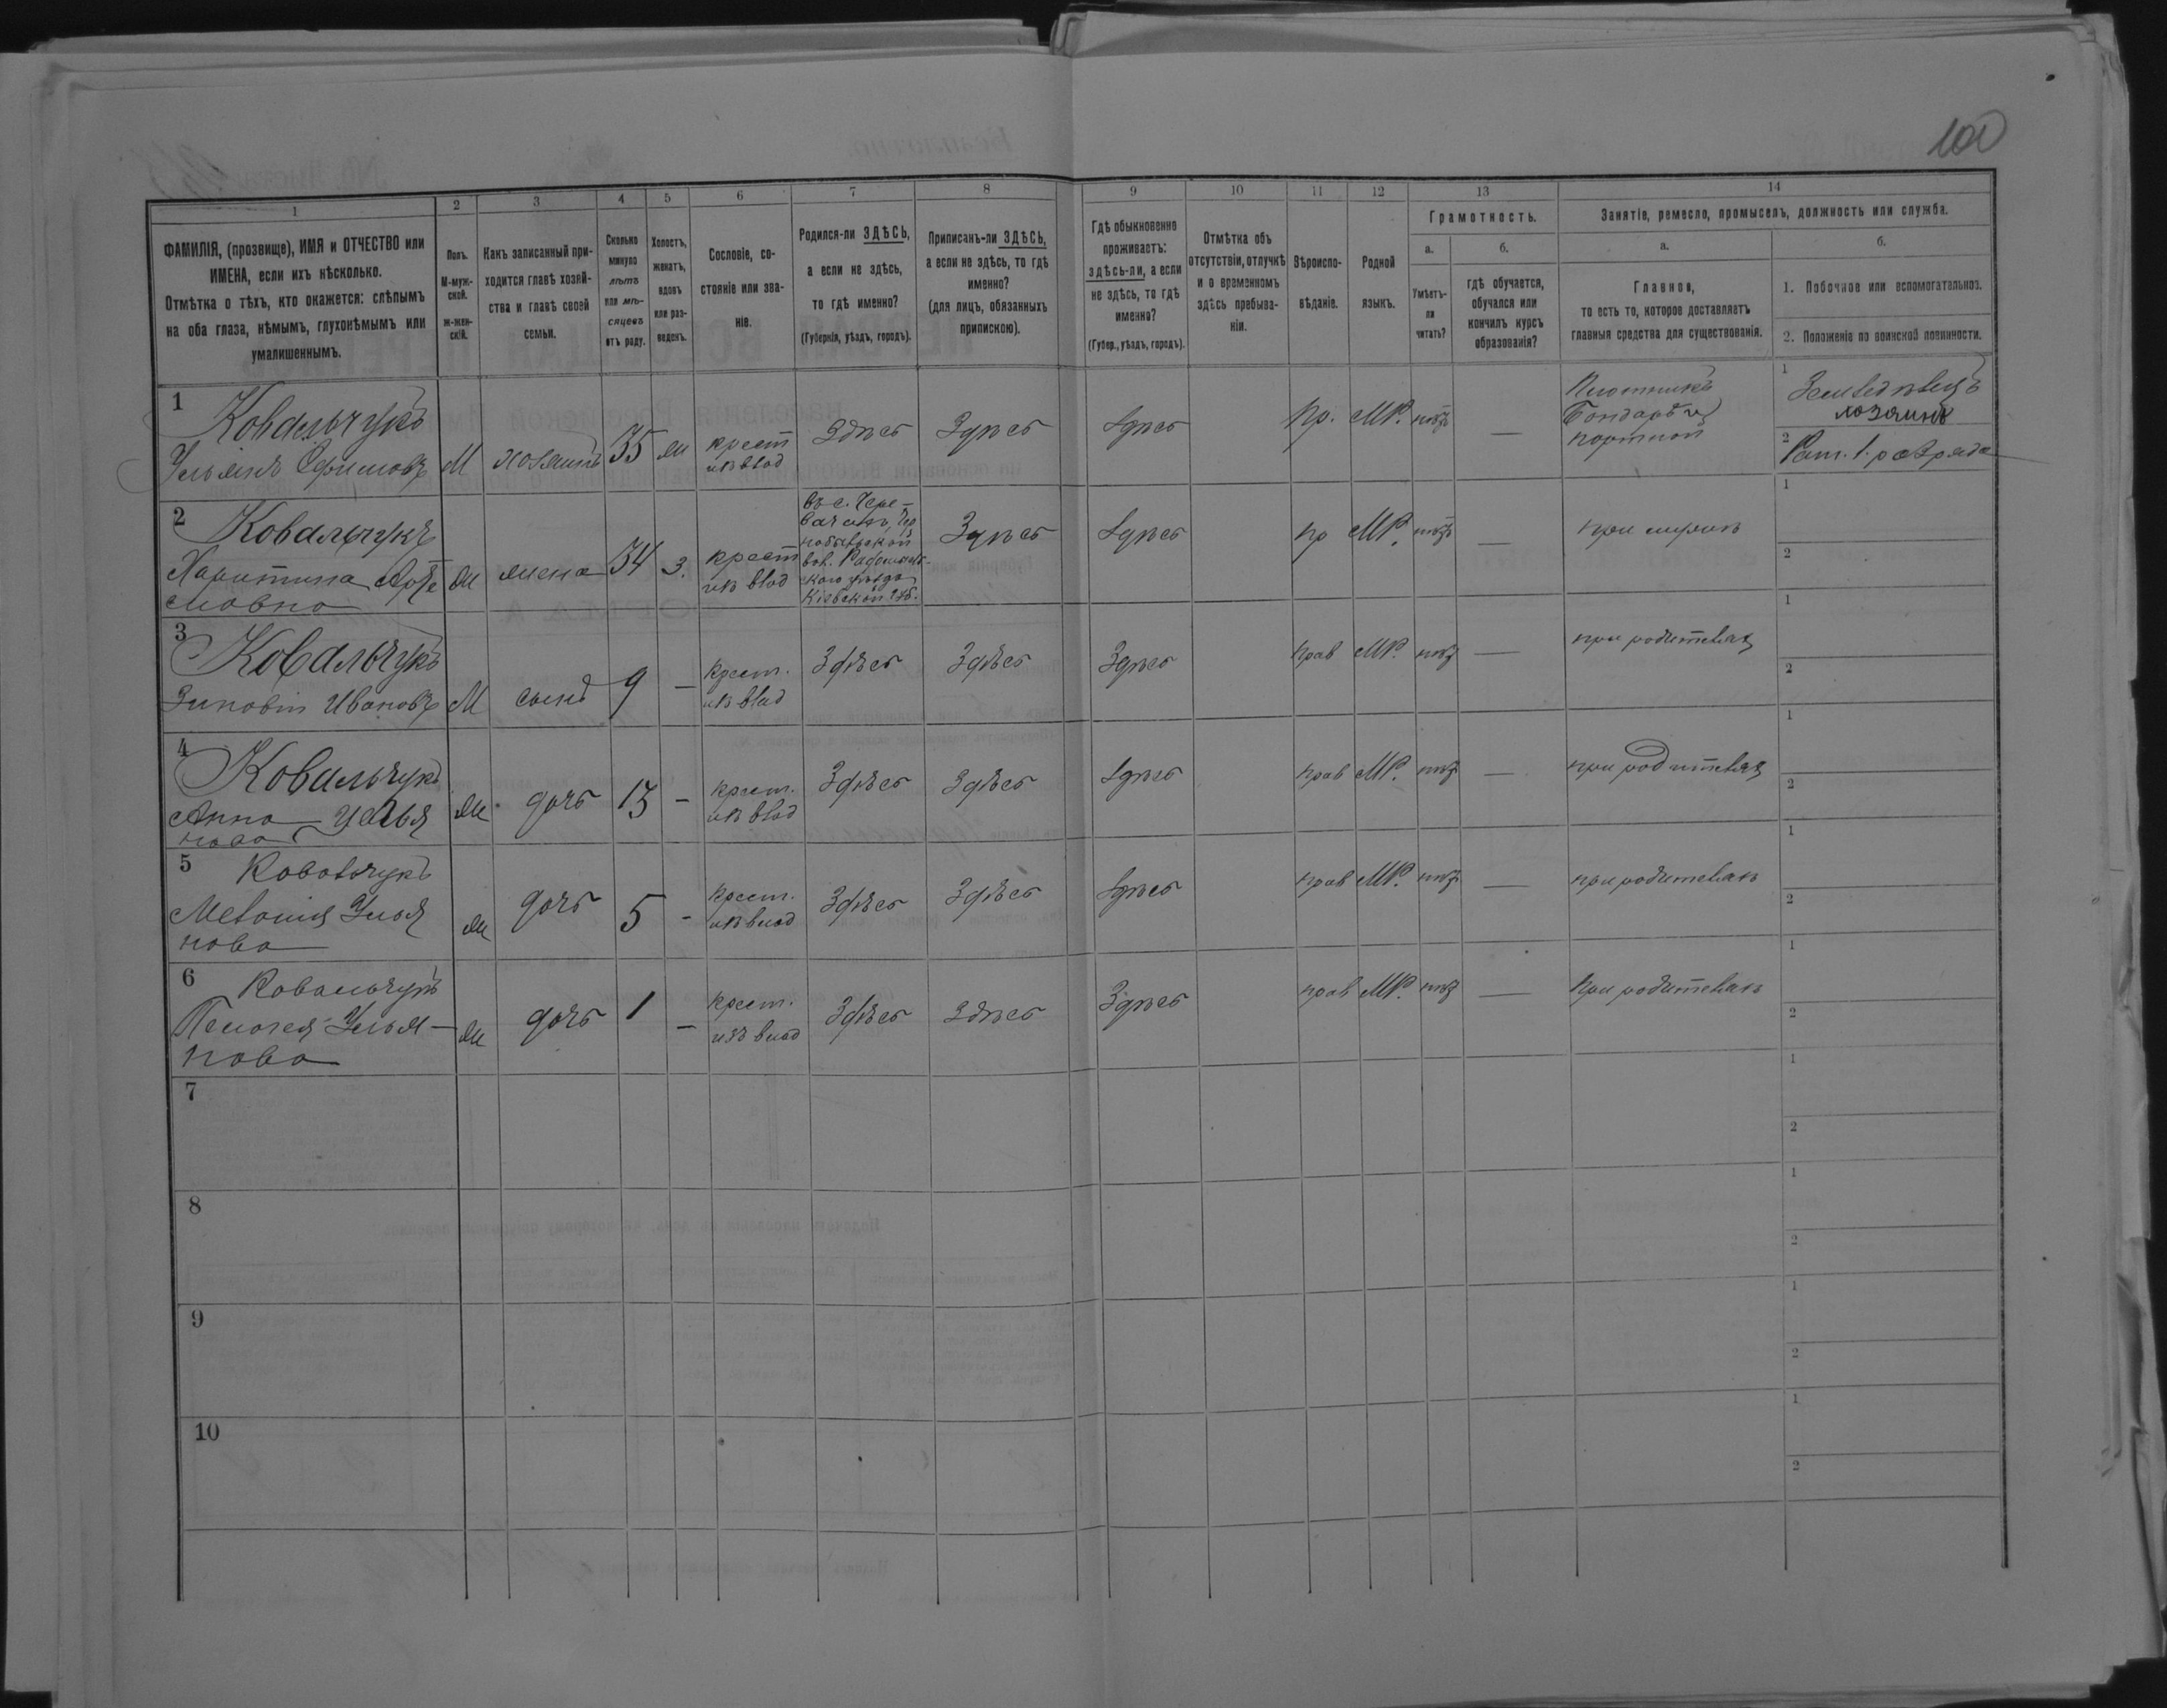 100
1 2 3 4 5 6 7 8 9 10 11 12 13 14
ФАМИЛІЯ, (прозвище), ИМЯ и ОТЧЕСТВО или
ИМЕНА, если ихъ нѣсколько.
Отмѣтка о тѣхъ, кто окажется: слѣпымъ
на оба глаза, нѣмымъ, глухонѣмымъ или
умалишеннымъ.
Полъ.
М-муж-
ской.
ж-жен-
скій.
Какъ записанный при-
ходится главѣ хозяй-
ства и главѣ своей
семьи.
Сколько
минуло
лѣтъ
или мѣ-
сяцевъ
отъ роду.
Холостъ,
женатъ,
вдовъ
или раз-
веденъ.
Сословіе, со-
стояніе или зва-
ніе.
Родился-ли ЗДѢСЬ,
а если не здѣсь,
то гдѣ именно?
(Губернія, уѣздъ, городъ).
Приписанъ-ли ЗДѢСЬ,
а если не здѣсь, то гдѣ
именно?
(для лицъ, обязанныхъ
припискою).
Гдѣ обыкновенно
проживаетъ:
здѣсь-ли, а если
не здѣсь, то гдѣ
именно?
(Губер., уѣздъ, городъ).
Отмѣтка объ
отсутствіи, отлучкѣ
и о временномъ
здѣсь пребыва-
ніи.
Вѣроиспо-
вѣданіе.
Родной
языкъ.
Грамотность.
а.
Умѣетъ-
ли
читать?
б.
гдѣ обучается,
обучался или
кончилъ курсъ
образованія?
Занятіе, ремесло, промыселъ, должность или служба.
а.
Главное,
то есть то, которое доставляетъ
главныя средства для существованія.
б.
1. Побочное или вспомогательное.
2. Положеніе по воинской повинности.
1
Ковальчукъ
Ульянъ Ефимовъ
М
хозяинъ
35
ж
крест
изъ влад
Здѣсь
Здѣсь
Здѣсь
пр.
МР.
нѣтъ
—
Плотникъ
Бондарь и
портной
1
Земледѣлецъ
хозяинъ
2
Рат. 1. разряда
2
Ковальчукъ
Харитина Арте
мовна
ж
жена
34
з.
крест
изъ влад
въ с. Чере-
вачахъ, Чер
нобыльской
вол. Радомысль-
скаго уѣзда
Кіевской губ.
Здѣсь
Здѣсь
пр
МР.
нѣтъ
—
при мужѣ
1
2
3
Ковальчукъ
Зиновій Ивановъ
М
сынъ
9
—
крест.
изъ влад
Здѣсь
Здѣсь
Здѣсь
прав
МР.
нѣт
—
при родителях
1
2
4
Ковальчукъ
Анна Улья
нова
ж
дочь
13
—
крест.
изъ влад
Здѣсь
Здѣсь
Здѣсь
прав
МР.
нѣт
—
при родителях
1
2
5
Ковальчукъ
Меланія Улья
нова
ж
дочь
5
-
крест.
изъ влад
Здѣсь
Здѣсь
Здѣсь
прав
МР.
нѣт
—
при родителяхъ
1
2
6
Ковальчукъ
Пелагея Улья-
нова
ж
дочь
1
—
крест.
изъ влад
Здѣсь
Здѣсь
Здѣсь
прав
МР.
нѣт
—
при родителяхъ
1
2
7
1
2
8
1
2
9
1
2
10
1
2